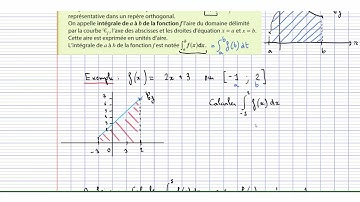 représentative dans un repère orthogonal.
On appelle intégrale de a à b de la fonction f l'aire du domaine délimité
par la courbe 𝒞f, l'axe des abscisses et les droites d'équation x = a et x = b.
Cette aire est exprimée en unités d'aire.
L'intégrale de a à b de la fonction f est notée ∫_a^b f(x)dx. = ∫_a^b f(t) dt
a b x
Exemple : f(x) = 2x + 3 sur [-1 ; 2]
a b
𝒞f
Calculer ∫_{-1}^{2} f(x) dx
=
0